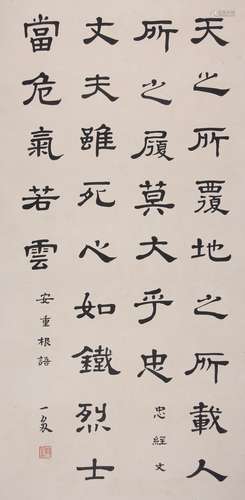 天之所覆地之所載人
所之履莫大乎忠
忠經文
丈夫雖死心如鐵烈士
當危氣若雲
安重根語
一